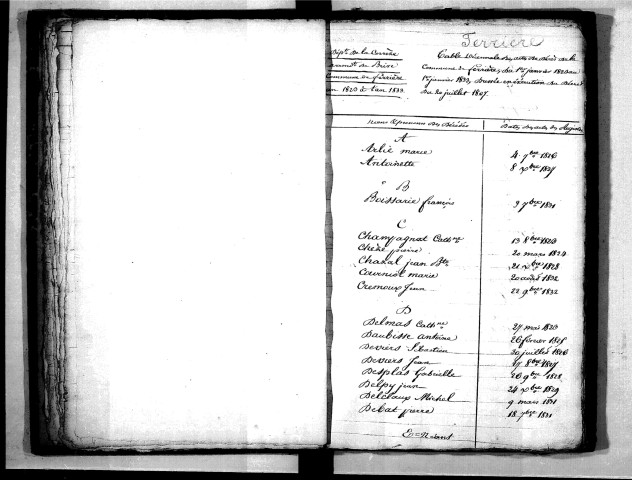 Ferriere
Dépt. de la Corrèze
arrondt. de Brive
Commune de ferrière
an 1823 à l'an 1833
Table décennale des actes de décès de la
Commune de ferrière, du 1er janvier 1823 au
1er janvier 1833, dressée en exécution du décret
du 20 juillet 1807.
Noms et prénoms des Décédés
Dates des actes des Registres
A
Arlie marie 4 7bre 1826
Antoinette 8 xbre 1827
B
Boissarie françois 9 7bre 1831
C
Champagnat Cathne 13 8bre 1823
Chèze pierre 20 mars 1824
Chazal jean Bte 21 xbre 1828
Couvniot marie 20 août 1832
Cremoux Jean 22 9bre 1832
D
Delmas Cathne 27 mai 1823
Daubisse antoine 26 février 1825
Devviers Sébastien 30 juillet 1826
Devviers Jean 17 8bre 1827
Desplas Gabrielle 26 9bre 1828
Delpy jean 24 xbre 1829
Delclaux Michel 9 mars 1831
Debat pierre 18 7bre 1831